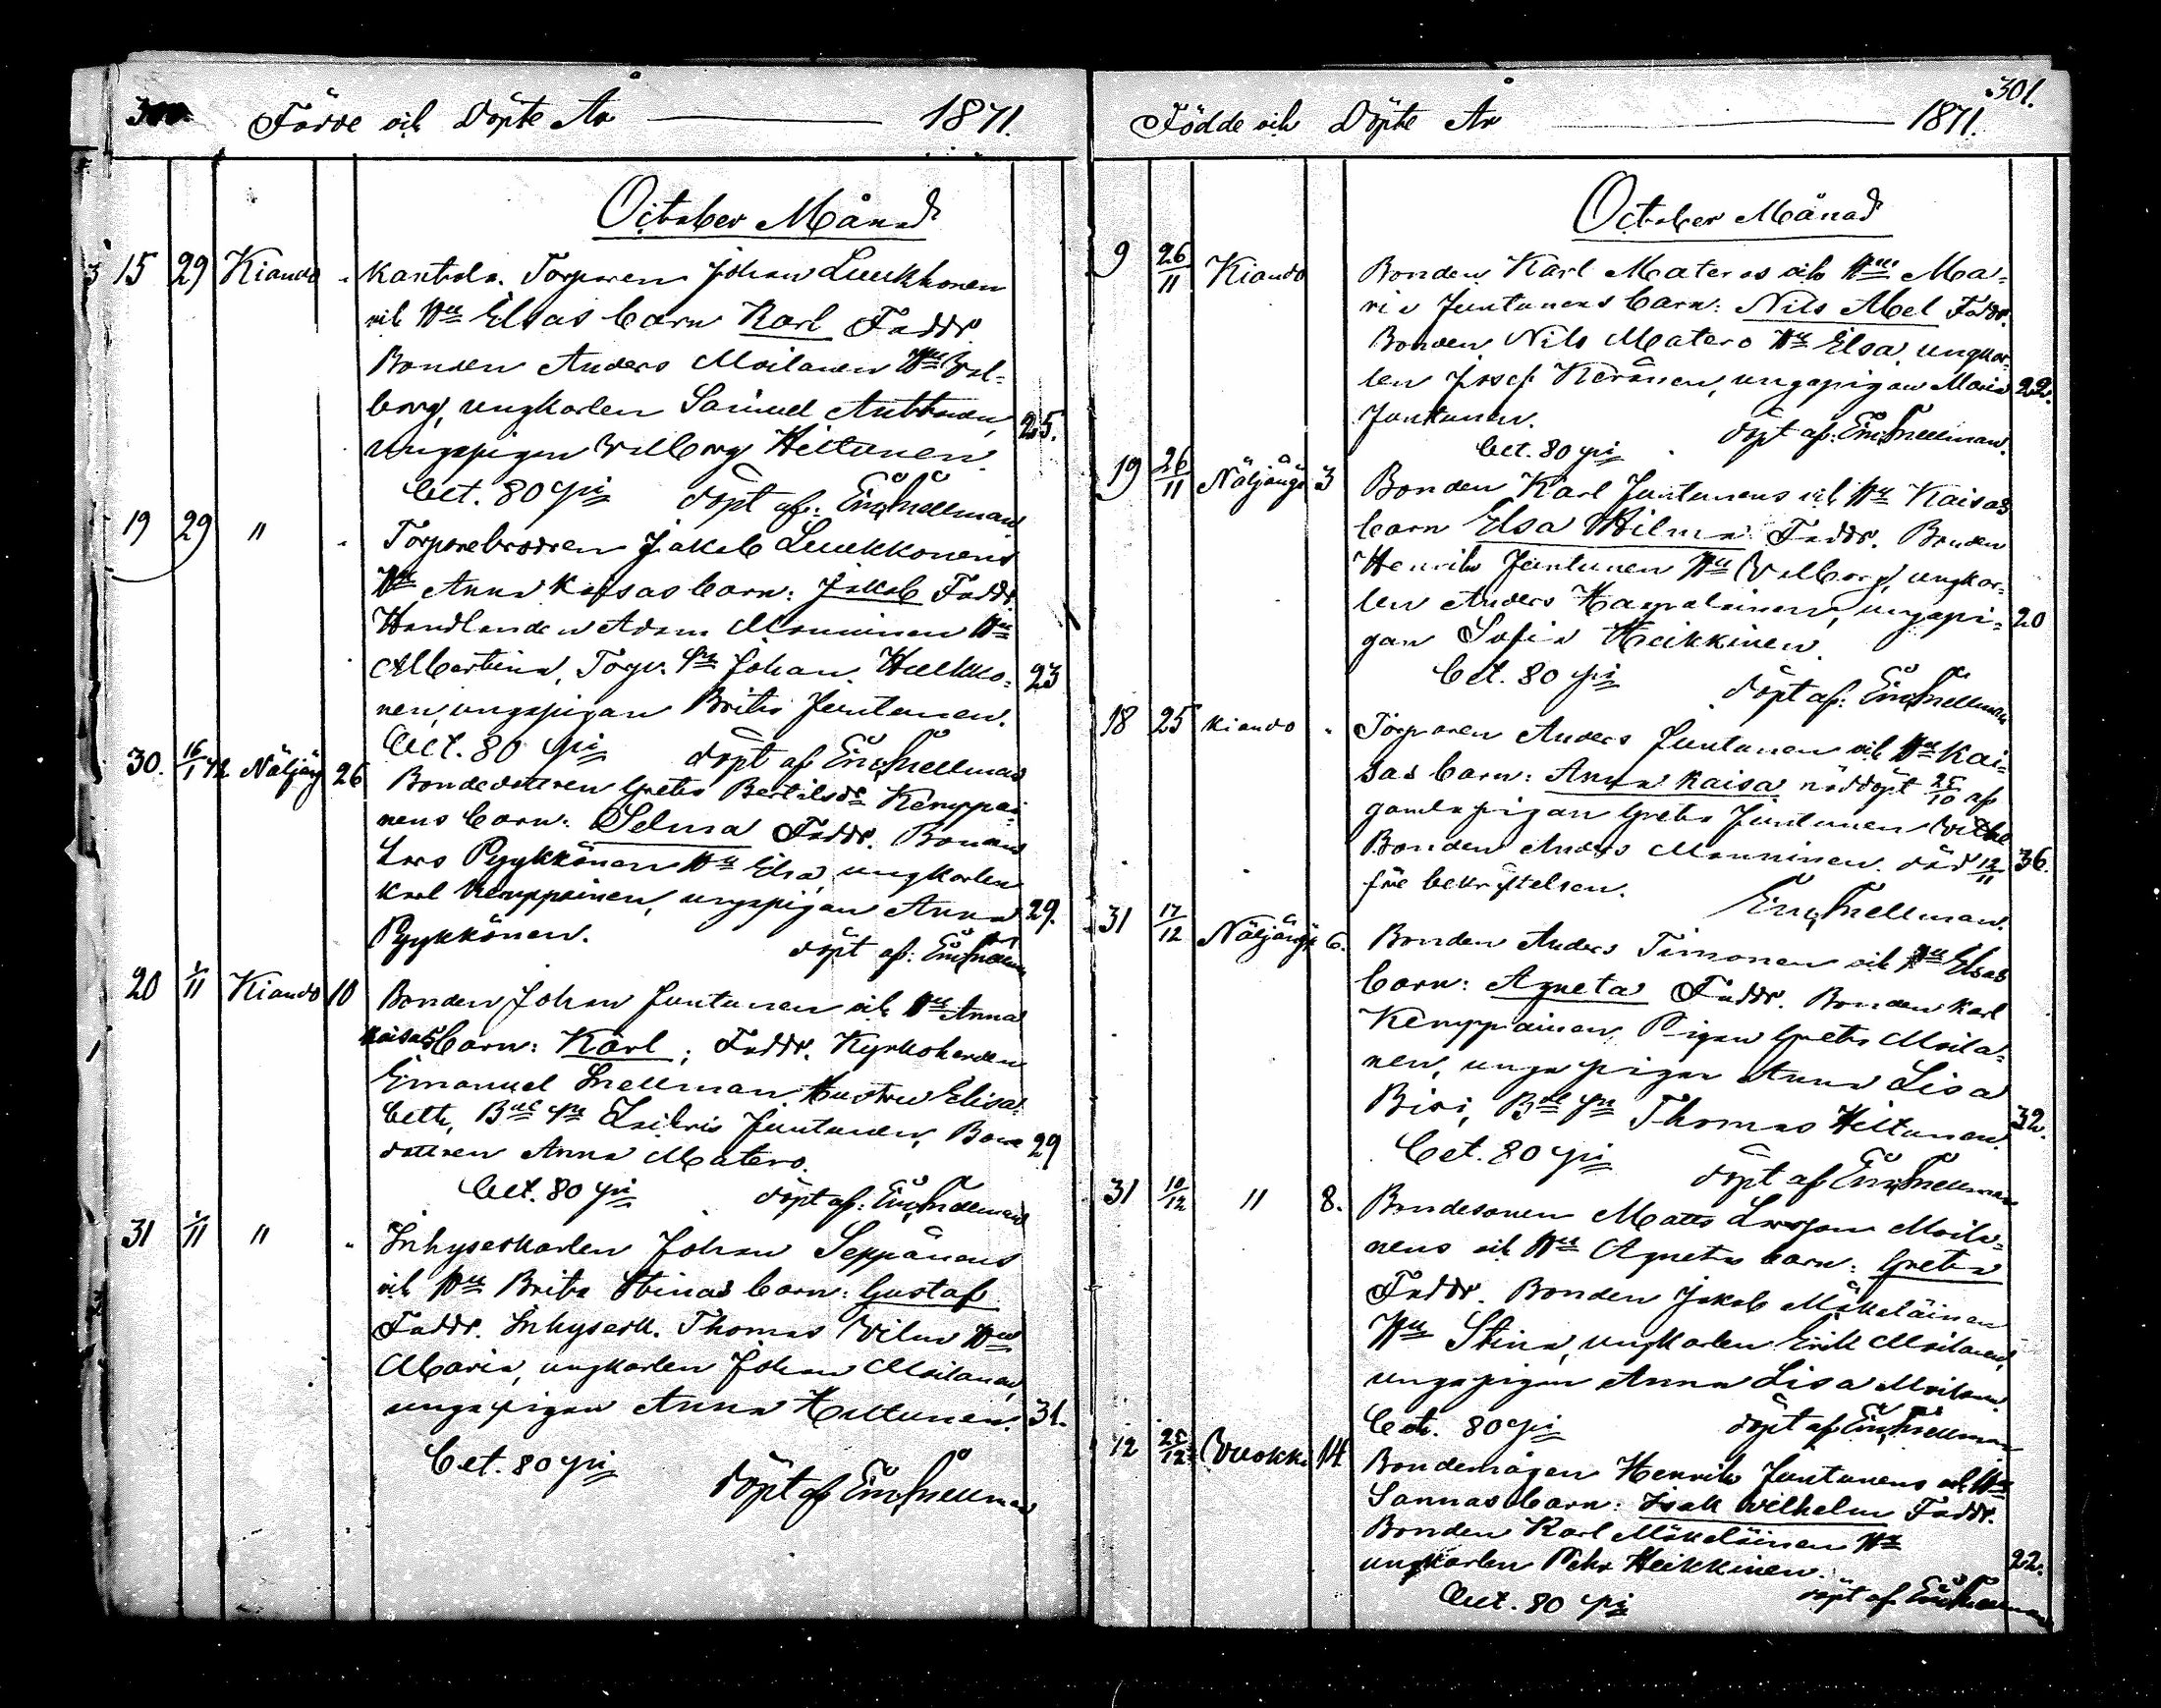 300. Födde och Döpte År — 1871.
October Månad
3 15 29 Kiando " Kantola. Torparen Johan Luukkonen
och Hu Elsas barn Karl Faddr.
Bonden Anders Moilanen Hu Wal-
borg, ungkarlen Samuel Anttonen, 25.
ungapigan Walborg Heltunen.
Bet. 80 pi döpt af: Em. Snellman
19 29 " " Torparebrodren Jakob Luukkonens
Hu Anna Kajsas barn: Jakob Faddr.
Handlanden Adam Manninen Hu
Albertina, Torp. Sn Johan Huukko- 23
nen, ungapigan Brita Juntunen.
Bet. 80 pi döpt af Em. Snellman
30. 16/1 72 Näljäng 26 Bondedottren Greta Bertilsdr Kemppai-
nens barn: Selma Faddr. Bonden
Lars Pyykkönen Hu Elsa, ungkarlen
Karl Kemppainen, ungapigan Anna 29.
Pyykkönen.
döpt af: Em. Snellman
20 1/11 Kiando 10 Bonden Johan Juntunen och Hu Anna
Kaisas barn: Karl; Faddr. Kyrkoherden
Emanuel Snellman Hustru Elisa-
beth, Bde Sn Juntunen, Bonde 29
dottren Anna Matero.
Bet. 80 pi döpt af: Em. Snellman
31 1/11 " " Inhyseskarlen Johan Seppänens
och Hu Brita Stinas barn: Gustaf
Faddr. Inhysesk. Thomas Wilm Hu
Maria, ungkarlen Johan Moilanen,
ungapigan Anna Heltunen. 31.
Bet. 80 pi
döpt af Em. Snellman
301.
Födde och Döpte År — 1871.
October Månad
9 26/11 Kiando Bonden Karl Materos och Hu Ma-
ria Juntunens barn: Nils Abel Faddr.
Bonden Nils Matero Hu Elsa, ungkar-
len Josef Keränen, ungapigan Maria 22.
Juntunen.
Bet. 80 pi döpt af: Em. Snellman.
19 26/11 Näljängä 3 Bonden Karl Juntunens och Hu Kaisas
barn Elsa Hilma Faddr. Bonden
Henrik Juntunen Hu Walborg, ungkar-
len Anders Haapalainen, ungapi- 20
gan Sofia Heikkinen.
Bet. 80 pi döpt af: Em. Snellman
18 25 Kiando " Torparen Anders Juntunen och Hu Kai-
sas barn: Anna Kaisa nöddöpt 25/10 af
gamlapigan Greta Juntunen Vittne
Bonden Anders Manninen. död 12/11 36.
före bekräftelsen.
Em. Snellman.
31 17/12 Näljängä 6. Bonden Anders Timonen och Hu Elsas
barn: Agneta Faddr. Bonden Karl
Kemppainen, Pigan Greta Moila-
nen, unga pigan Anna Lisa
Biri, Bde Sn Thomas Heltunen. 32.
Bet. 80 pi döpt af Em. Snellman
31 10/12 " 8. Bondesonen Matts Larsson Moila-
nens och Hu Agnetas barn: Greta
Faddr. Bonden Jakob Mäkeläinen
Hu Stina, ungkarlen Erik Moilanen,
ungapigan Anna Lisa Moilanen.
Bet. 80 pi döpt af Em. Snellman
12 25/12 Wuokki 14. Bondemågen Henrik Juntunens och Hu
Sannas barn: Isak Wilhelm Faddr.
Bonden Karl Mäkeläinen Hu
ungkarlen Pehr Heikkinen. 22.
Bet. 80 pi döpt af Em. Snellman